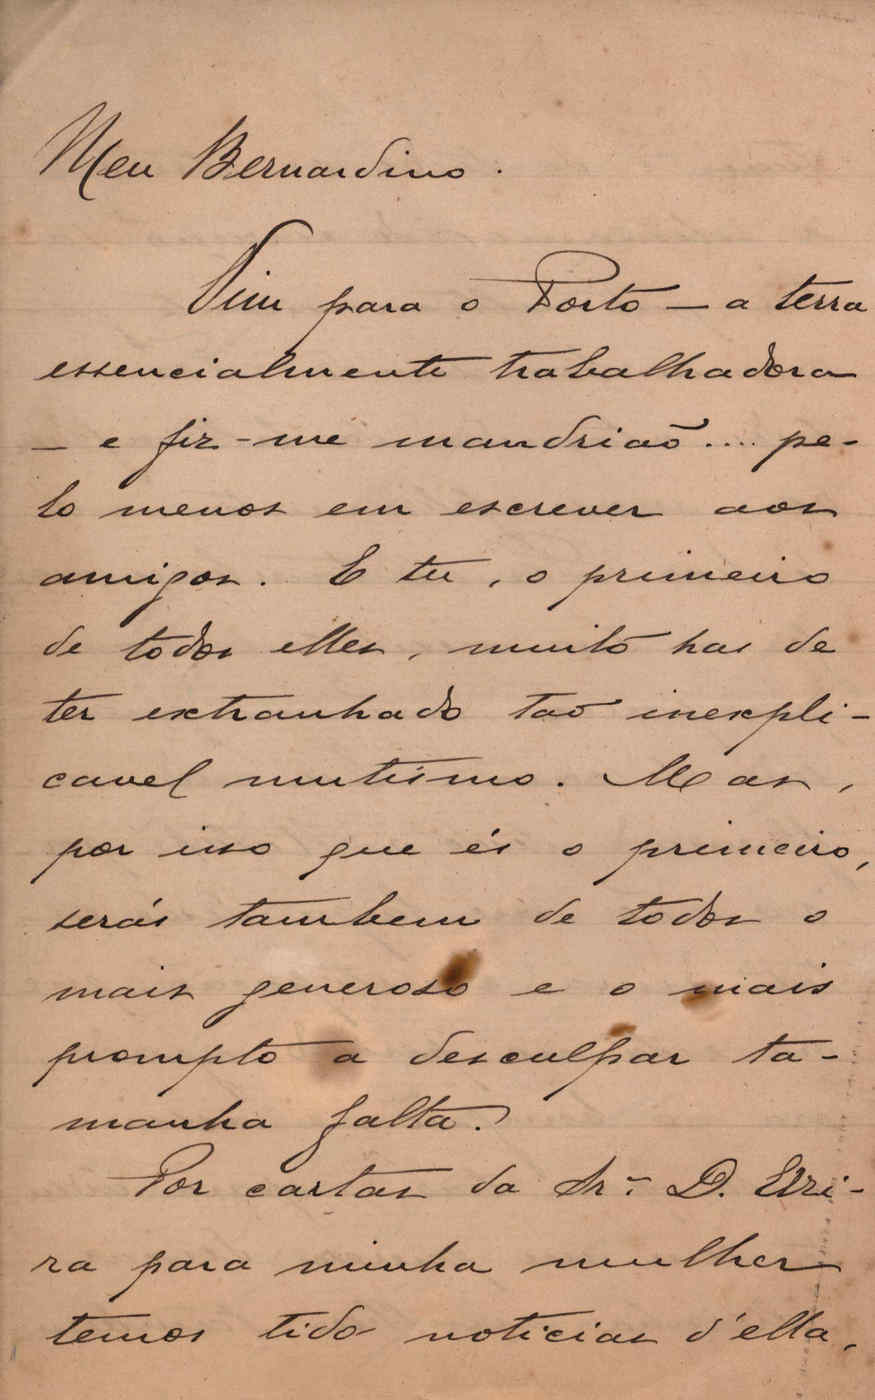 Meu Bernardino.
Vim para o Porto — a terra
essencialmente trabalhadora
— e fiz-me mandriaõ.... pe-
lo menos em escrever aos
amigos. E tu, o primeiro
de todos elles, muito has de
ter extranhado taõ inexpli-
cavel mutismo. Mas,
por isso que és o primeiro,
serás tambem de todos o
mais generoso e o mais
prompto a desculpar ta-
manha falta.
Por cartas da Sr.ª D. Elzi-
ra para minha mulher
temos tido noticias d'ella,